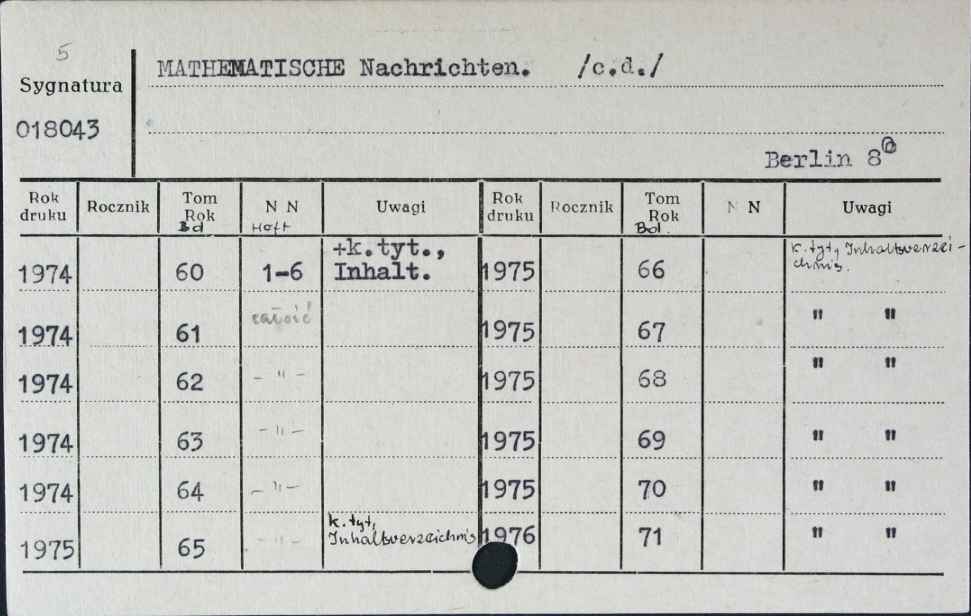 5
MATHEMATISCHE Nachrichten. /c.d./
Sygnatura
018043
Berlin 8
Rok druku Rocznik Tom Rok Bd N N Heft Uwagi Rok druku Rocznik Tom Rok Bd. N N Uwagi
1974 60 1-6 +k.tyt., Inhalt. 1975 66 k. tyt, Inhaltsverzeichnis.
1974 61 całość 1975 67 " "
1974 62 - " - 1975 68 " "
1974 63 - " - 1975 69 " "
1974 64 - " - 1975 70 " "
1975 65 - " - k. tyt, Inhaltsverzeichnis 1976 71 " "